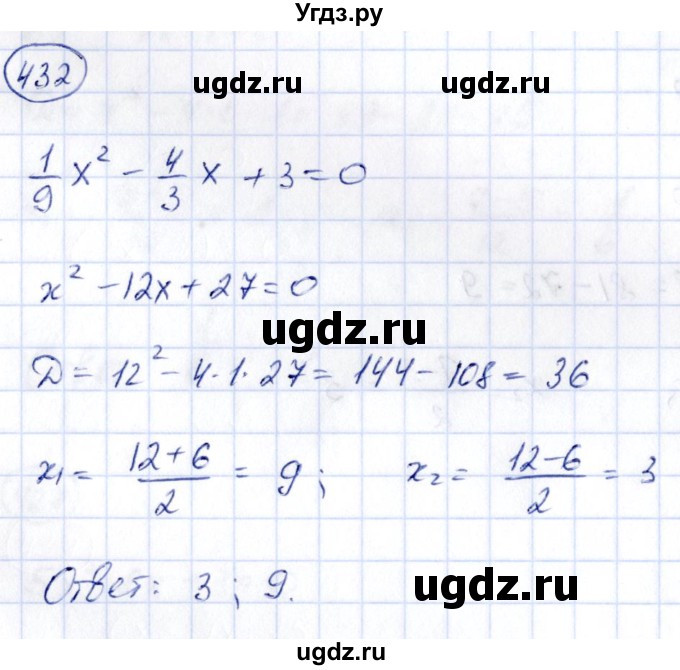 Угдз.ру
432
ugdz.ru ugdz.ru
1/9 x² - 4/3 x + 3 = 0
x² - 12x + 27 = 0
ugdz.ru
Д = 12² - 4·1·27 = 144 - 108 = 36
x₁ = (12+6)/2 = 9; x₂ = (12-6)/2 = 3
ugdz.ru
Ответ: 3; 9.
ugdz.ru